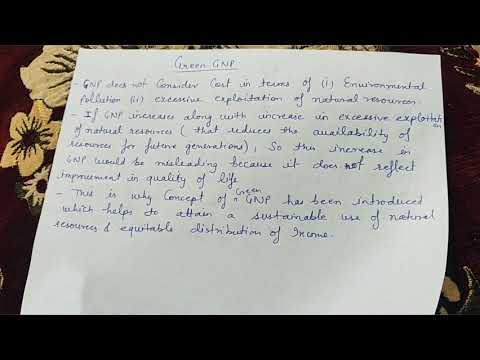 Green GNP
- GNP does not Consider Cost in terms of (i) Environmental
Pollution (ii) excessive exploitation of natural resources.
- If GNP increases along with increase in excessive exploitation
of natural resources (that reduces the availability of
resources for future generations), So this increase in
GNP would be misleading because it does not reflect
improvement in quality of life
- This is why Concept of Green GNP has been introduced
which helps to attain a sustainable use of natural
resources & equitable distribution of Income.